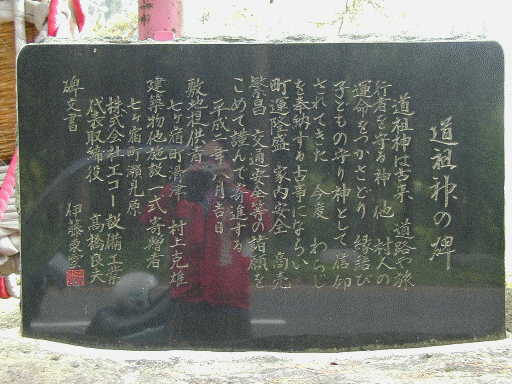 道祖神の碑
道祖神は古来 道路や旅
行者を守る神 他 村人の
運命をつかさどり 縁結び
子どもの守り神として信仰
されてきた 今度 わらじ
を奉納する古事にならい
町運隆盛 家内安全 商売
繁昌 交通安全等の諸願を
こめて謹んで寄進する
平成 年 月吉日
敷地提供者
七ヶ宿町滑津 村上克雄
建築物他施設一式寄贈者
七ヶ宿町瀬見原
株式会社エコー設備工業
代表取締役 高橋良夫
碑文書 伊藤